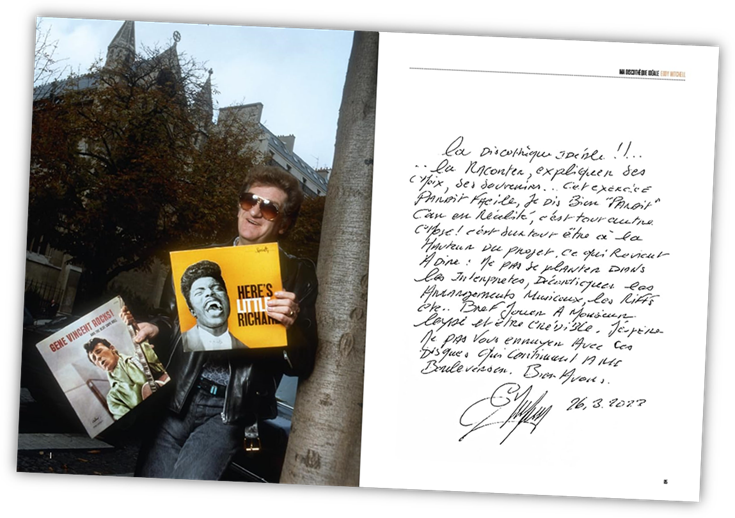 GENE VINCENT ROCKS!
HERE'S
LITTLE
RICHARD
MA DISCOTHÈQUE IDÉALE EDDY MITCHELL
La Discothèque idéale !!...
.. la Raconter, expliquer ses
choix, ses souvenirs... Cet exercice
Paraît facile, je dis Bien "Paraît"
Car en Réalité, c'est tout autre
chose! c'est surtout être à la
Hauteur du projet. ce qui Revient
A dire : Ne pas se planter Dans
les Interprètes, Décortiquer les
Arrangements Musicaux, les Riffs
etc.. Bref Jouer A Monsieur
et être Crédible. J'espère
Ne pas vous ennuyer Avec ces
Disques qui continuent A me
Bouleverser. Bien Avous.
26.3.2022